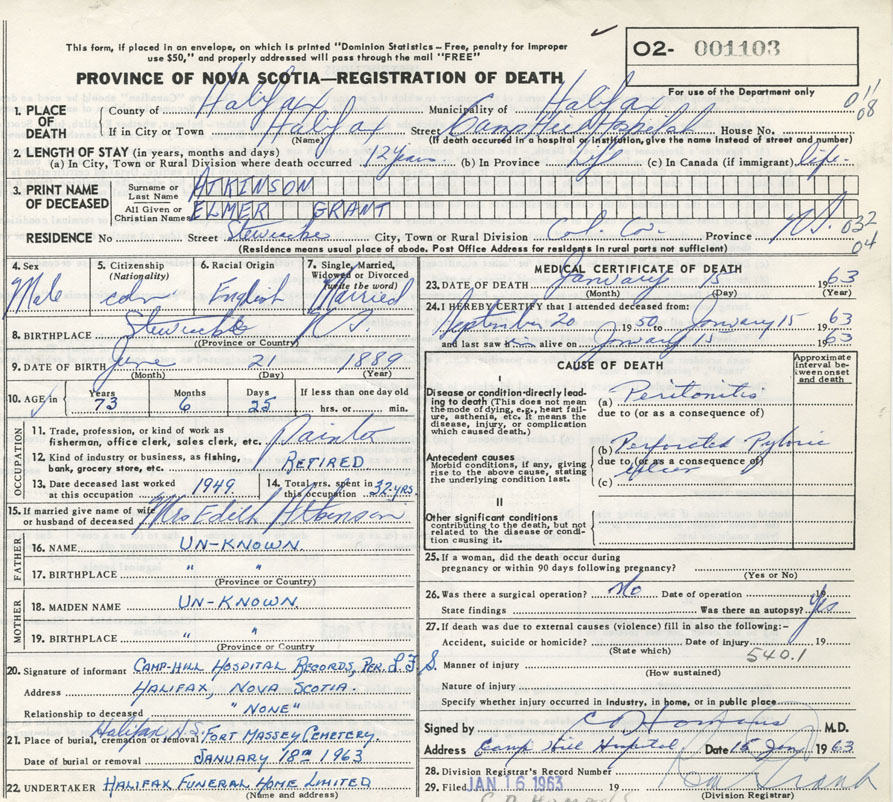 This form, if placed in an envelope, on which is printed "Dominion Statistics - Free, penalty for improper
use $50," and properly addressed will pass through the mail "FREE"
PROVINCE OF NOVA SCOTIA—REGISTRATION OF DEATH
02- 001103
For use of the Department only
011
08
1. PLACE OF DEATH
County of Halifax Municipality of Halifax
If in City or Town Halifax Street Camp Hill Hospital House No.
(Name) (If death occurred in a hospital or institution, give the name instead of street and number)
2. LENGTH OF STAY (in years, months and days)
(a) In City, Town or Rural Division where death occurred 12 Years (b) In Province Life (c) In Canada (if immigrant) life-
3. PRINT NAME OF DECEASED
Surname or Last Name ATKINSON
All Given or Christian Names ELMER GRANT
RESIDENCE No Street Stewiacke City, Town or Rural Division Col. Co. Province N.S. 032
04
(Residence means usual place of abode. Post Office Address for residents in rural parts not sufficient)
4. Sex Male
5. Citizenship (Nationality) cdn
6. Racial Origin English
7. Single, Married, Widowed or Divorced (write the word) Married
8. BIRTHPLACE Stewiacke N.S.
(Province or Country)
9. DATE OF BIRTH June 21 1889
(Month) (Day) (Year)
10. AGE in Years 73 Months 6 Days 25 If less than one day old hrs. or min.
OCCUPATION
11. Trade, profession, or kind of work as fisherman, office clerk, sales clerk, etc. Painter
12. Kind of industry or business, as fishing, bank, grocery store, etc. RETIRED
13. Date deceased last worked at this occupation 1949. 14. Total yrs. spent in this occupation 32 YRS.
15. If married give name of wife or husband of deceased Mrs Edith Atkinson
FATHER
16. NAME UN-KNOWN.
17. BIRTHPLACE " "
(Province or Country)
MOTHER
18. MAIDEN NAME UN-KNOWN.
19. BIRTHPLACE " "
(Province or Country)
20. Signature of informant CAMP-HILL HOSPITAL RECORDS, PER. L.F.S.
Address HALIFAX, NOVA SCOTIA.
Relationship to deceased "NONE"
21. Place of burial, cremation or removal Halifax N.S. FORT MASSEY CEMETERY.
Date of burial or removal JANUARY 18TH 1963
22. UNDERTAKER HALIFAX FUNERAL HOME LIMITED
(Name and address)
MEDICAL CERTIFICATE OF DEATH
23. DATE OF DEATH January 15 1963
(Month) (Day) (Year)
24. I HEREBY CERTIFY that I attended deceased from:
September 20 1950 to January 15 1963
and last saw him alive on January 15 1963
CAUSE OF DEATH
Approximate interval between onset and death
I
Disease or condition directly leading to death (This does not mean the mode of dying, e.g., heart failure, asthenia, etc. It means the disease, injury, or complication which caused death.)
(a) Peritonitis
due to (or as a consequence of)
Antecedent causes
Morbid conditions, if any, giving rise to the above cause, stating the underlying condition last.
(b) Perforated Pyloric
due to (or as a consequence of)
(c) ulcer
II
Other significant conditions
contributing to the death, but not related to the disease or condition causing it.
25. If a woman, did the death occur during pregnancy or within 90 days following pregnancy?
(Yes or No)
26. Was there a surgical operation? No Date of operation 19
State findings Was there an autopsy? Yes
27. If death was due to external causes (violence) fill in also the following:-
Accident, suicide or homicide? Date of injury 19
(State which) 540.1
Manner of injury
(How sustained)
Nature of injury
Specify whether injury occurred in industry, in home, or in public place
Signed by M.D.
Address Camp Hill Hospital Date 15 Jan 1963
28. Division Registrar's Record Number
29. Filed JAN 16 1963 19
(Division Registrar)